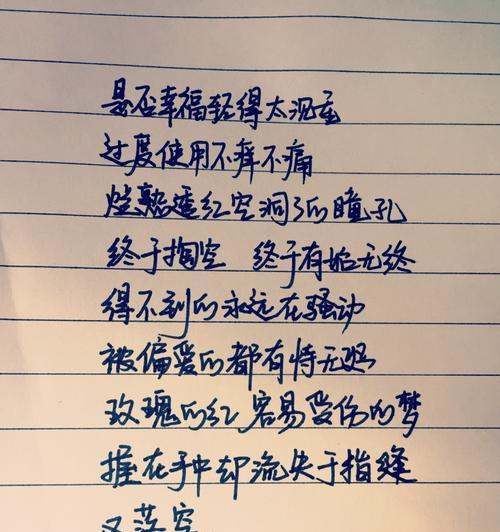 是否幸福轻得太沉重
过度使用不痒不痛
烂熟透红空洞了的瞳孔
终于掏空 终于有始无终
得不到的永远在骚动
被偏爱的都有恃无恐
玫瑰的红 容易受伤的梦
握在手中却流失于指缝
又落空